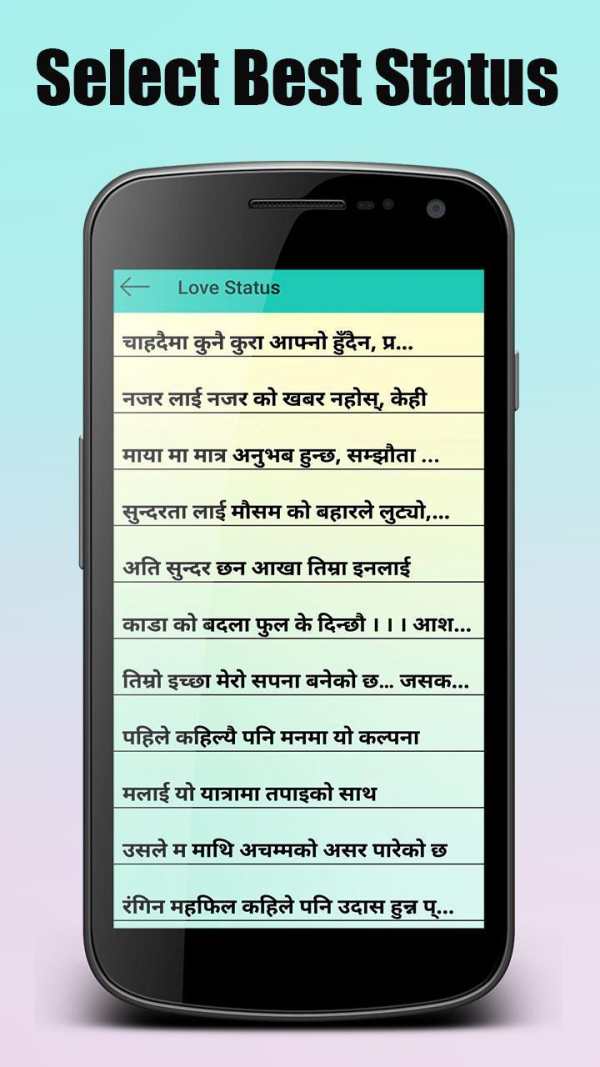 Select Best Status
Love Status
चाहदैमा कुनै कुरा आफ्नो हुँदैन, प्र...
नजर लाई नजर को खबर नहोस्, केही
माया मा मात्र अनुभब हुन्छ, सम्झौता ...
सुन्दरता लाई मौसम को बहारले लुट्यो,...
अति सुन्दर छन आखा तिम्रा इनलाई
काडा को बदला फुल के दिन्छौ । । । आश...
तिम्रो इच्छा मेरो सपना बनेको छ... जसक...
पहिले कहिल्यै पनि मनमा यो कल्पना
मलाई यो यात्रामा तपाइको साथ
उसले म माथि अचम्मको असर पारेको छ
रंगिन महफिल कहिले पनि उदास हुन्न प्...